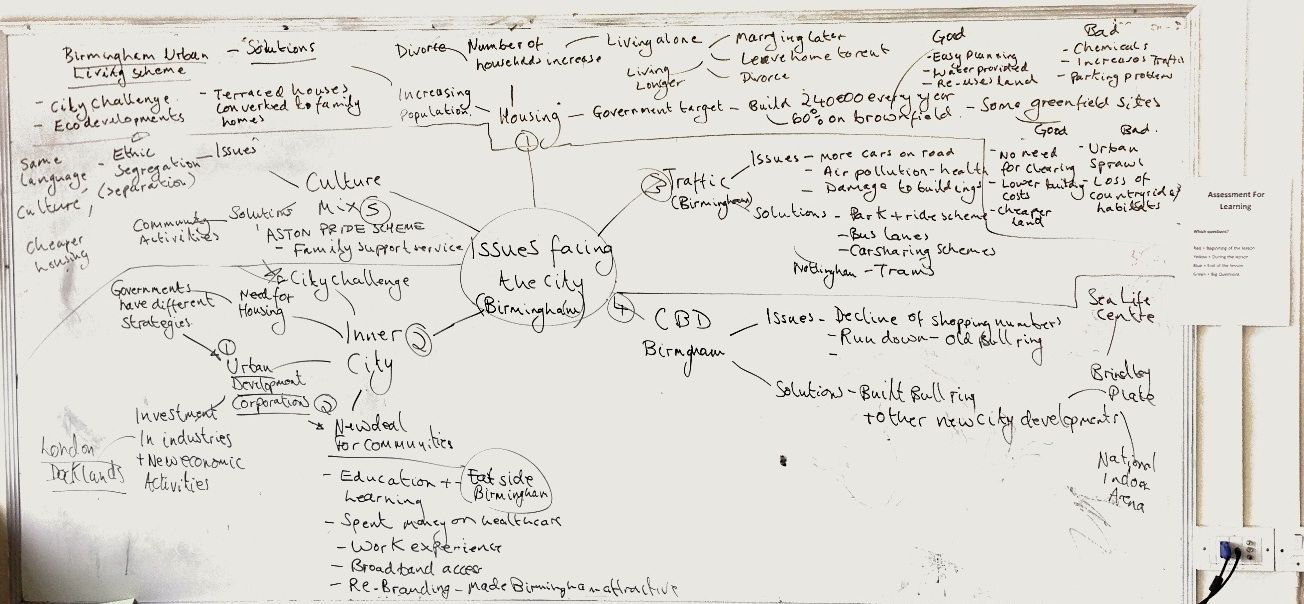 Birmingham Urban
Living scheme
- City Challenge
- Eco developments
- Solutions
- Terraced houses
converted to family
homes
Divorce
Number of
households increase
Living alone
Marrying later
Leave home to rent
Divorce
Living
Longer
Increasing
Population
Housing
①
- Government target - Build 240000 every year
60% on brownfield
Good
- Easy planning
- Water provided
- Re-uses land
Bad
- Chemicals
- Increases Traffic
- Parking problem
- Some greenfield sites
Good
- No need
for clearing
- Lower building
costs
- Cheaper
land
Bad.
- Urban
Sprawl
- Loss of
countryside/
habitats
Same
language
Culture,
Cheaper
housing
Ethic
- Segregation
(separation)
- Issues
Culture
Mix ⑤
Solutions
Community
Activities
ASTON PRIDE SCHEME
- Family support service
Issues facing
the City
(Birmingham)
③ Traffic
(Birmingham)
Issues - More cars on road
- Air pollution - health
- Damage to buildings
Solutions - Park + ride scheme
- Bus lanes
- Carsharing schemes
Nottingham - Trams
④ CBD
Birmgham
Issues - Decline of shopping numbers
- Run down - old Bull ring
-
Solutions - Built Bull ring
+ other new city developments
Sea Life
Centre
Brindley
Plate
National
Indoor
Arena
City Challenge
Need for
Housing
Governments
have different
Strategies.
Inner ②
City
①
Urban
Development
Corporations
Investment
In industries
+ New economic
Activities
London
Docklands
②
New deal
For Communities
- Education +
Learning
- Eat side
Birmingham
- Spent money on healthcare
- Work experience
- Broadband access
- Re-Branding - made Birmingham attractive
Assessment For
Learning
Which questions?
Red = Beginning of the lesson
Yellow = During the lesson
Blue = End of the lesson
Green = Big Questions